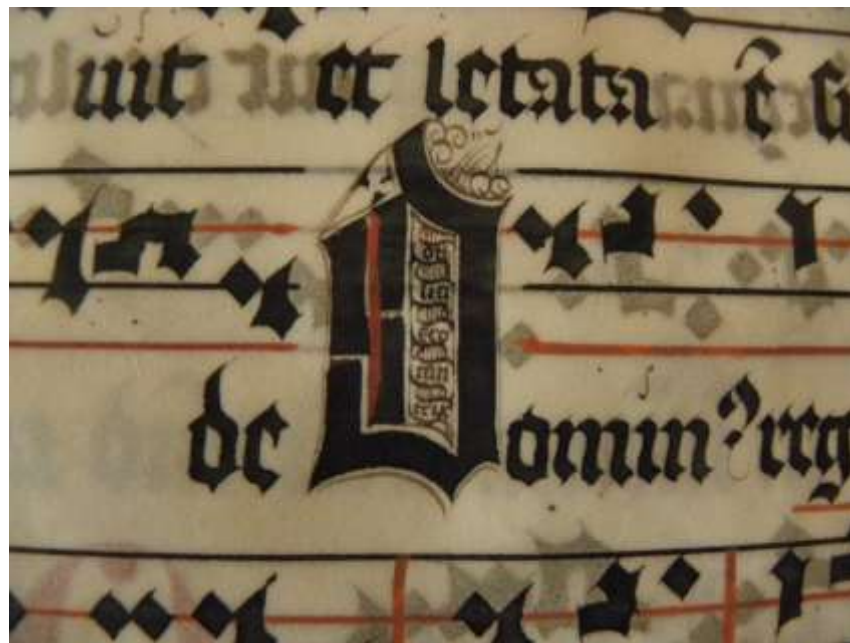 uit et letata ē
de Domin⁹ reg